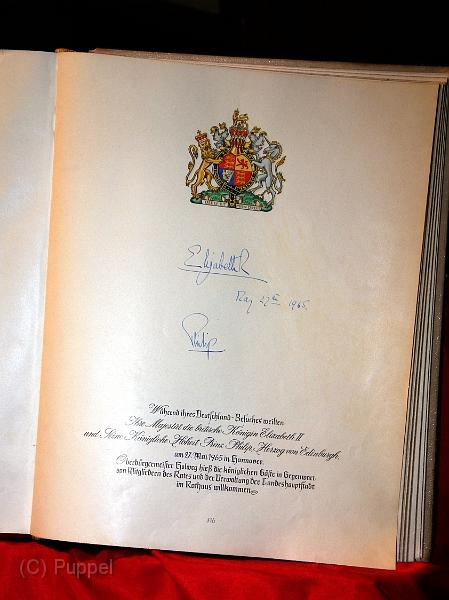 Elizabeth R
May 27th 1965.
Philip
Während ihres Deutschland-Besuches weilten
Ihre Majestät die britische Königin Elizabeth II
und Seine Königliche Hoheit Prinz Philip, Herzog von Edinburgh,
am 27. Mai 1965 in Hannover.
Oberbürgermeister Holweg hieß die königlichen Gäste in Gegenwart
von Mitgliedern des Rates und der Verwaltung der Landeshauptstadt
im Rathaus willkommen.
(C) Puppel